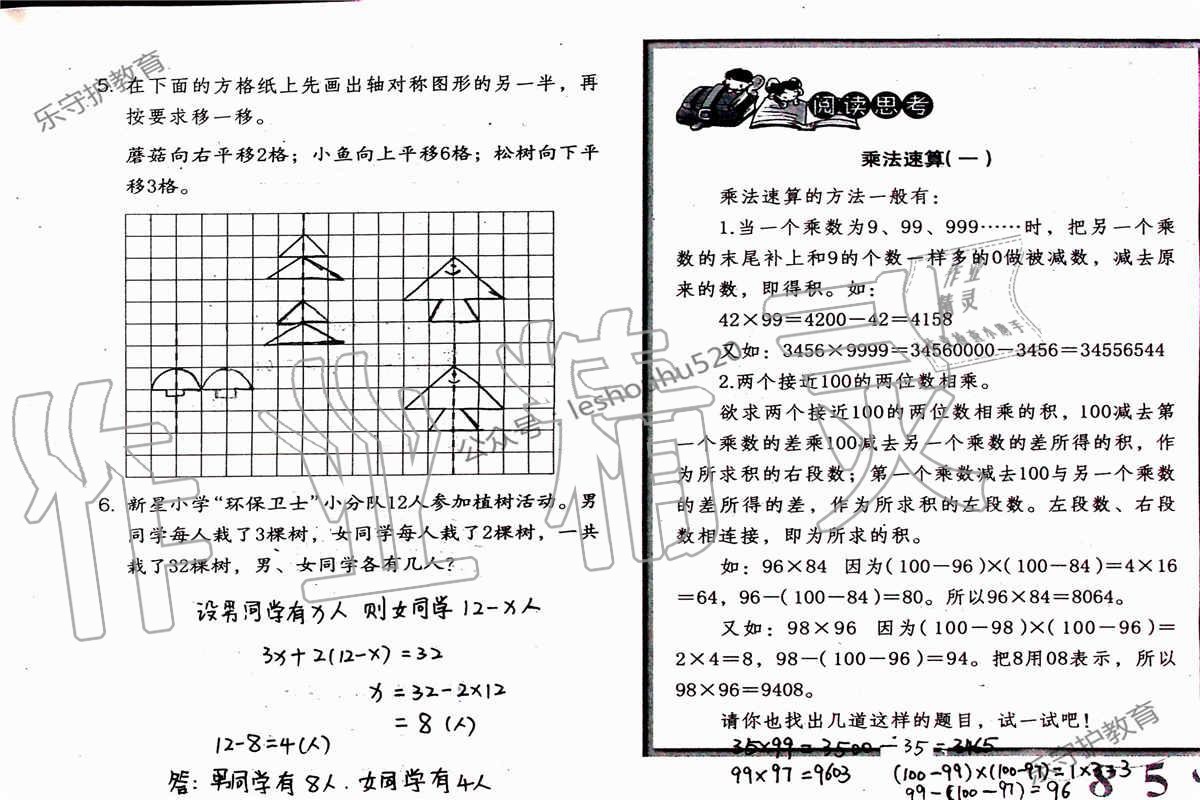 5. 在下面的方格纸上先画出轴对称图形的另一半，再
按要求移一移。
蘑菇向右平移2格；小鱼向上平移6格；松树向下平
移3格。
6. 新星小学“环保卫士”小分队12人参加植树活动。男
同学每人栽了3棵树，女同学每人栽了2棵树，一共
栽了32棵树，男、女同学各有几人？
设男同学有x人 则女同学12-x人
3x+2(12-x)=32
x=32-2×12
=8(人)
12-8=4(人)
答：男同学有8人．女同学有4人
阅读思考
乘法速算(一)
乘法速算的方法一般有：
1.当一个乘数为9、99、999……时，把另一个乘
数的末尾补上和9的个数一样多的0做被减数，减去原
来的数，即得积。如：
42×99=4200-42=4158
又如：3456×9999=34560000-3456=34556544
2.两个接近100的两位数相乘。
欲求两个接近100的两位数相乘的积，100减去第
一个乘数的差乘100减去另一个乘数的差所得的积，作
为所求积的右段数；第一个乘数减去100与另一个乘数
的差所得的差，作为所求积的左段数。左段数、右段
数相连接，即为所求的积。
如：96×84 因为(100-96)×(100-84)=4×16
=64，96-(100-84)=80。所以96×84=8064。
又如：98×96 因为(100-98)×(100-96)=
2×4=8，98-(100-96)=94。把8用08表示，所以
98×96=9408。
请你也找出几道这样的题目，试一试吧！
35×99=3500-35=3465
99×97=9603 (100-99)×(100-97)=1×3=3
99-(100-97)=96
85
乐守护教育
公众号 leshouhu520
作业精灵
作业
精灵
乐守护教育